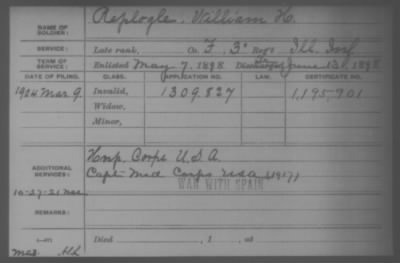 NAME OF SOLDIER: Replogle. William H.
SERVICE: Late rank, Co. F. 3" Reg't Ill. Inf
TERM OF SERVICE: Enlisted May 7, 1898 Discharged June 13, 1898
DATE OF FILING. CLASS. APPLICATION NO. LAW. CERTIFICATE NO.
1924 Mar 9. Invalid, 1309.827 1,195,701
Widow,
Minor,
ADDITIONAL SERVICES: Hosp. Corps U.S.A.
Capt. Med Corps USA (1917)
WAR WITH SPAIN
10-27-21
REMARKS:
Died , 1 , at